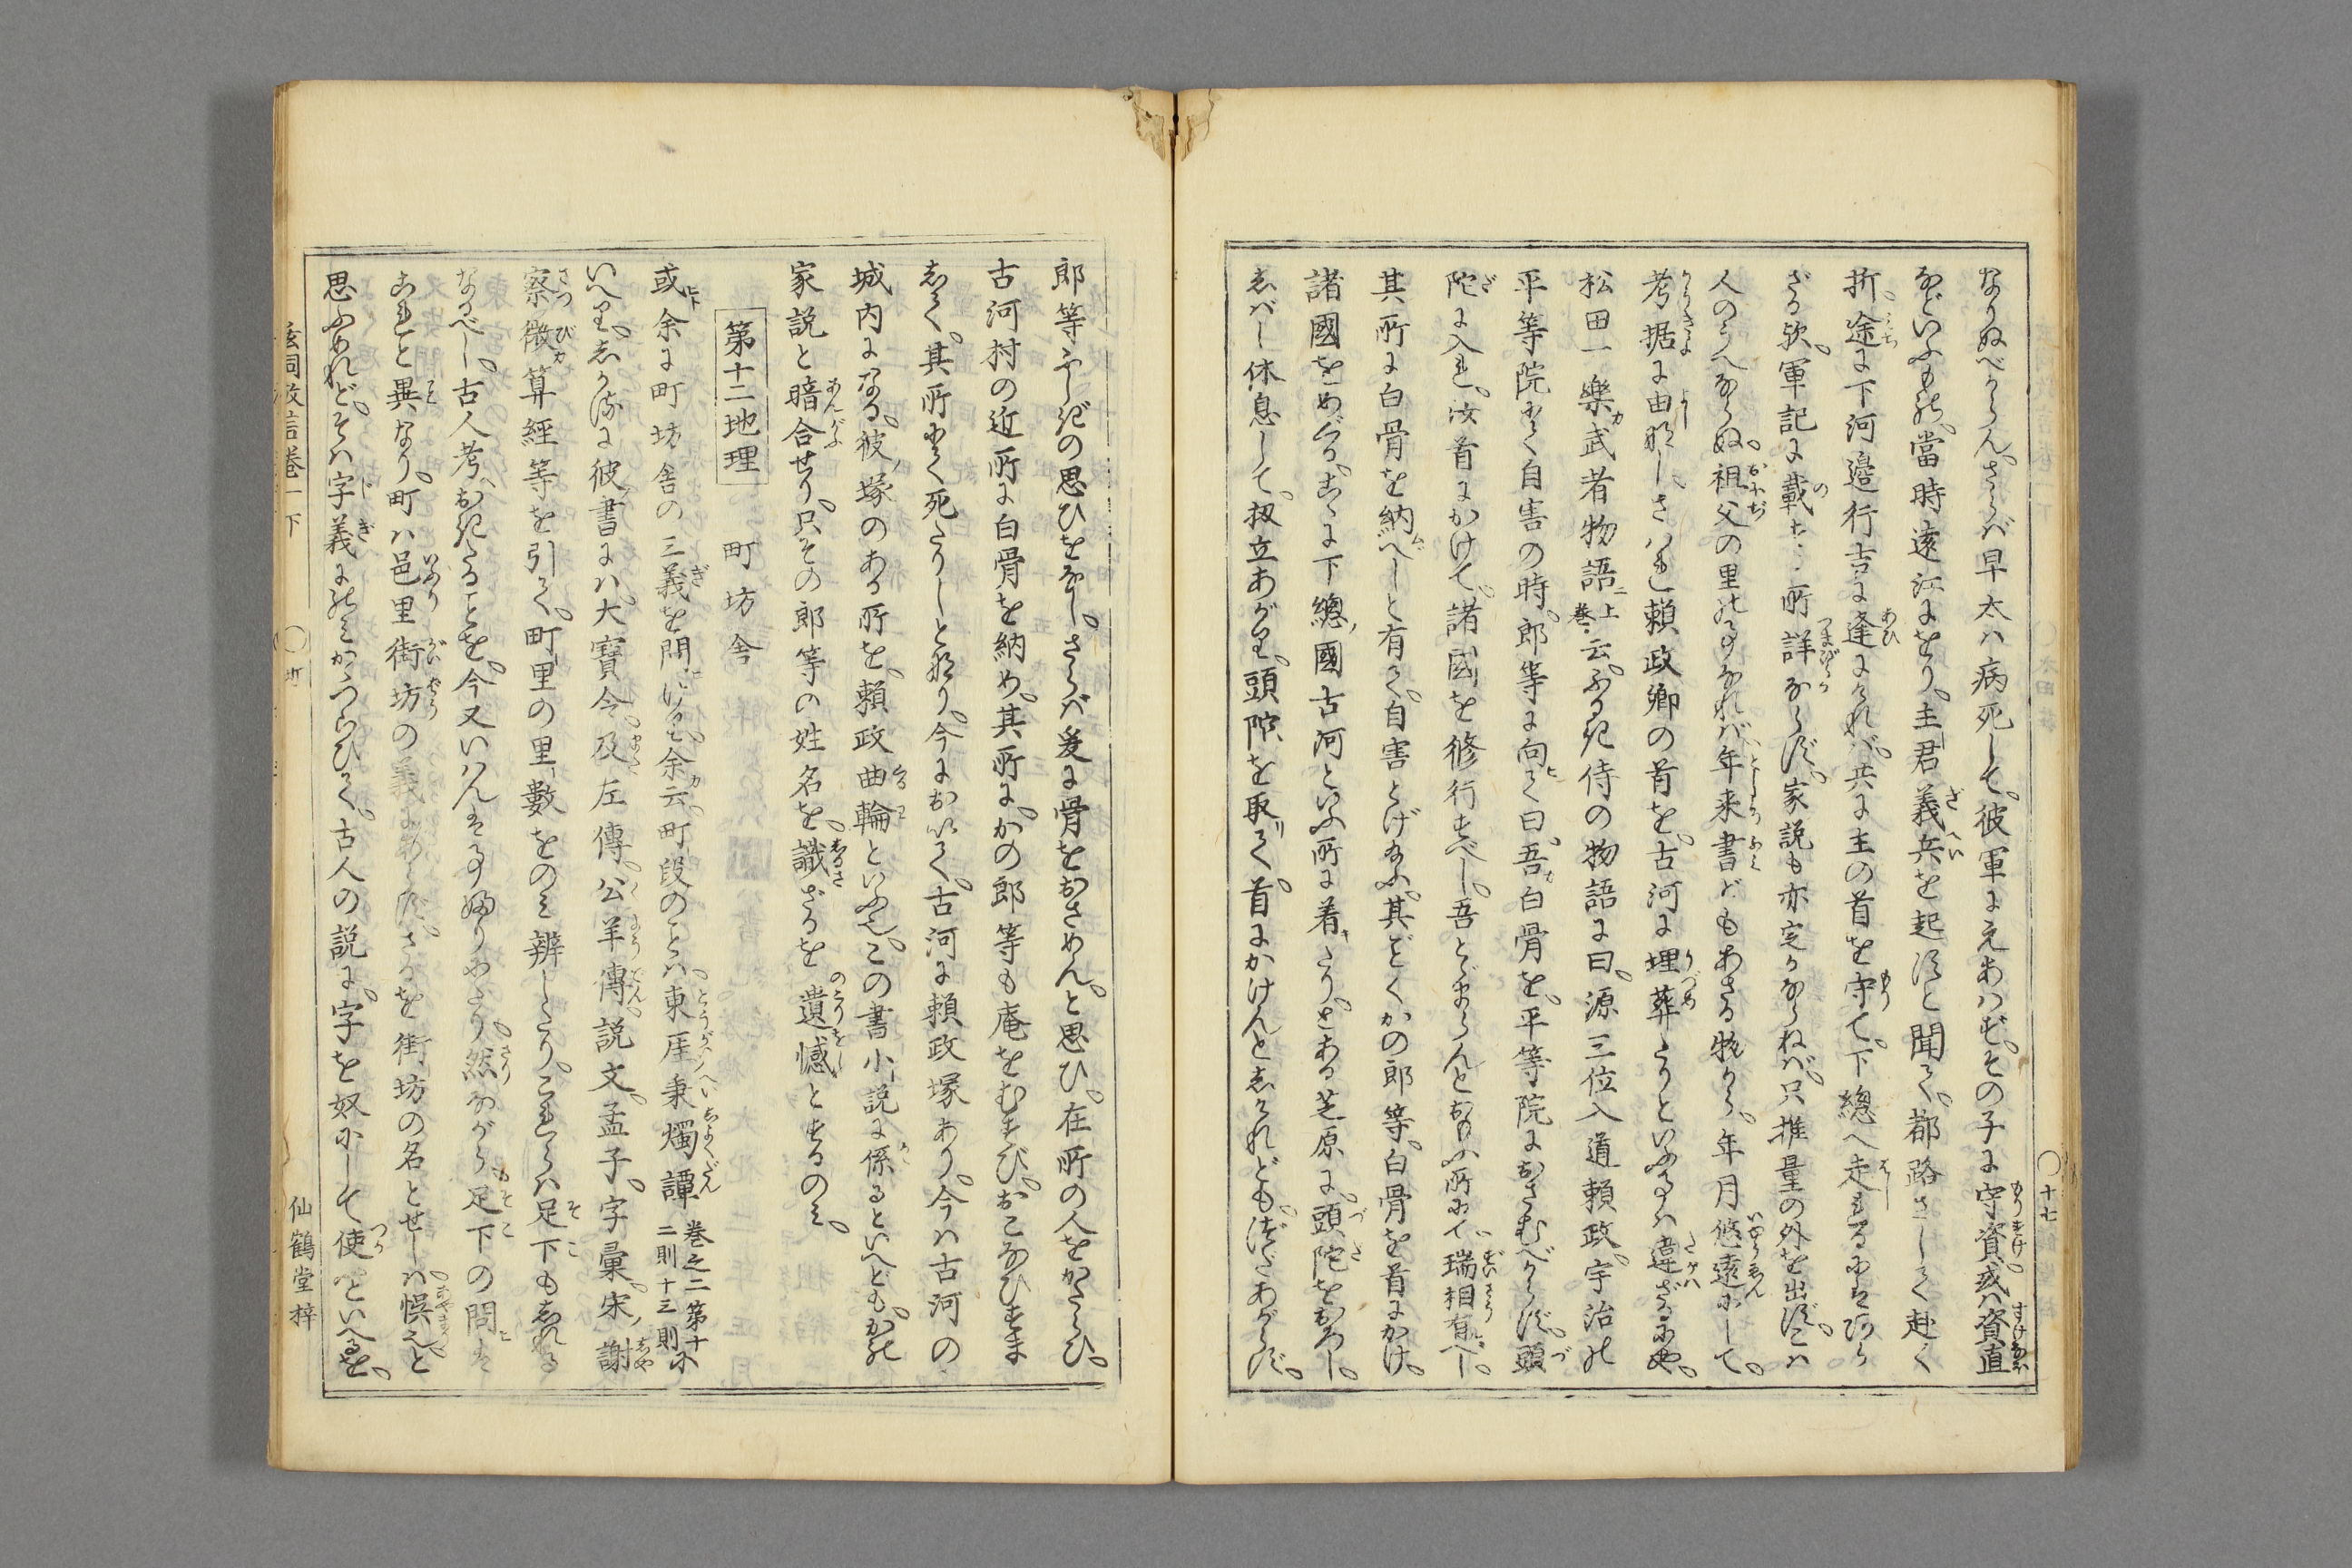 なりぬべからん。さらバ早太ハ病死して。彼軍にえあハず。その子に守資。或ハ資直
などいふもの。當時遠江にをり。主君義兵を起すと聞て。都路さして赴く
折。途に下河邉行吉に逢にければ。共に主の首を守て。下總へ走れるにはあら
ざる欤。軍記に載たる所詳ならず。家説も亦定かならねバ。只推量の外を出ず。こハ
人のうへならぬ。祖父の里の事なれバ。年来書どもあさる物から。年月悠遠にして。
考据に由なし。さハれ頼政卿の首を。古河に埋葬たりといふ事ハ違ざるにや。
松田一樂武者物語上巻云。ふるき侍の物語に曰。源三位入道頼政。宇治の
平等院にて自害の時。郎等に向て曰。吾白骨を。平等院におさむべからず。頭
陀に入れ。汝首にかけて。諸國を修行すべし。吾とゞまらんとおもふ所にて。瑞相有べし。
其所に白骨を納べしと有て。自害とげ給ふ。其ごとくかの郎等。白骨を首にかけ。
諸國をめぐる。こゝに下總國古河といふ所に着たり。とある芝原に。頭陀をおろし。
しバし休息して。扨立あがり。頭陀を取て。首にかけんとしけれども。さらにあがらず。
郎等ふしぎの思ひをなし。さらバ爰に骨をおさめん。と思ひ。在所の人をかたらひ。
古河村の近所に白骨を納め。其所に。かの郎等も庵をむすび。おこなひすま
して。其所にて死たりしとなり。今において。古河に頼政塚あり。今ハ古河の
城内になる。彼塚のある所を。頼政曲輪といふ也。この書小説に係るといへども。かの
家説と暗合せり。只その郎等の姓名を。識ざるを遺憾とするのミ。
第十二地理　町坊舎
或余に町坊舎の三義を問。いらへて余云。町段のことハ。東厓秉燭譚巻之二第十二則十三則に
いへり。しかるに彼書にハ。大寶令。及左傳。公羊傳。説文。孟子。字彙。宋謝
察微算經等を引て。町里の里數をのミ辨したり。これらハ足下もしれる
なるべし。古人考おきたることを。今又いハんは事ふりにたり。然ながら足下の問は
これと異なり。町ハ邑里街坊の義にあらず。さるを街坊の名とせしハ悞也。と
思ふめれど。そハ字義にのミかゝづらひて。古人の説に。字を奴にして使。といへるを。
玄同放言巻一下
仙鶴堂梓
〇十七